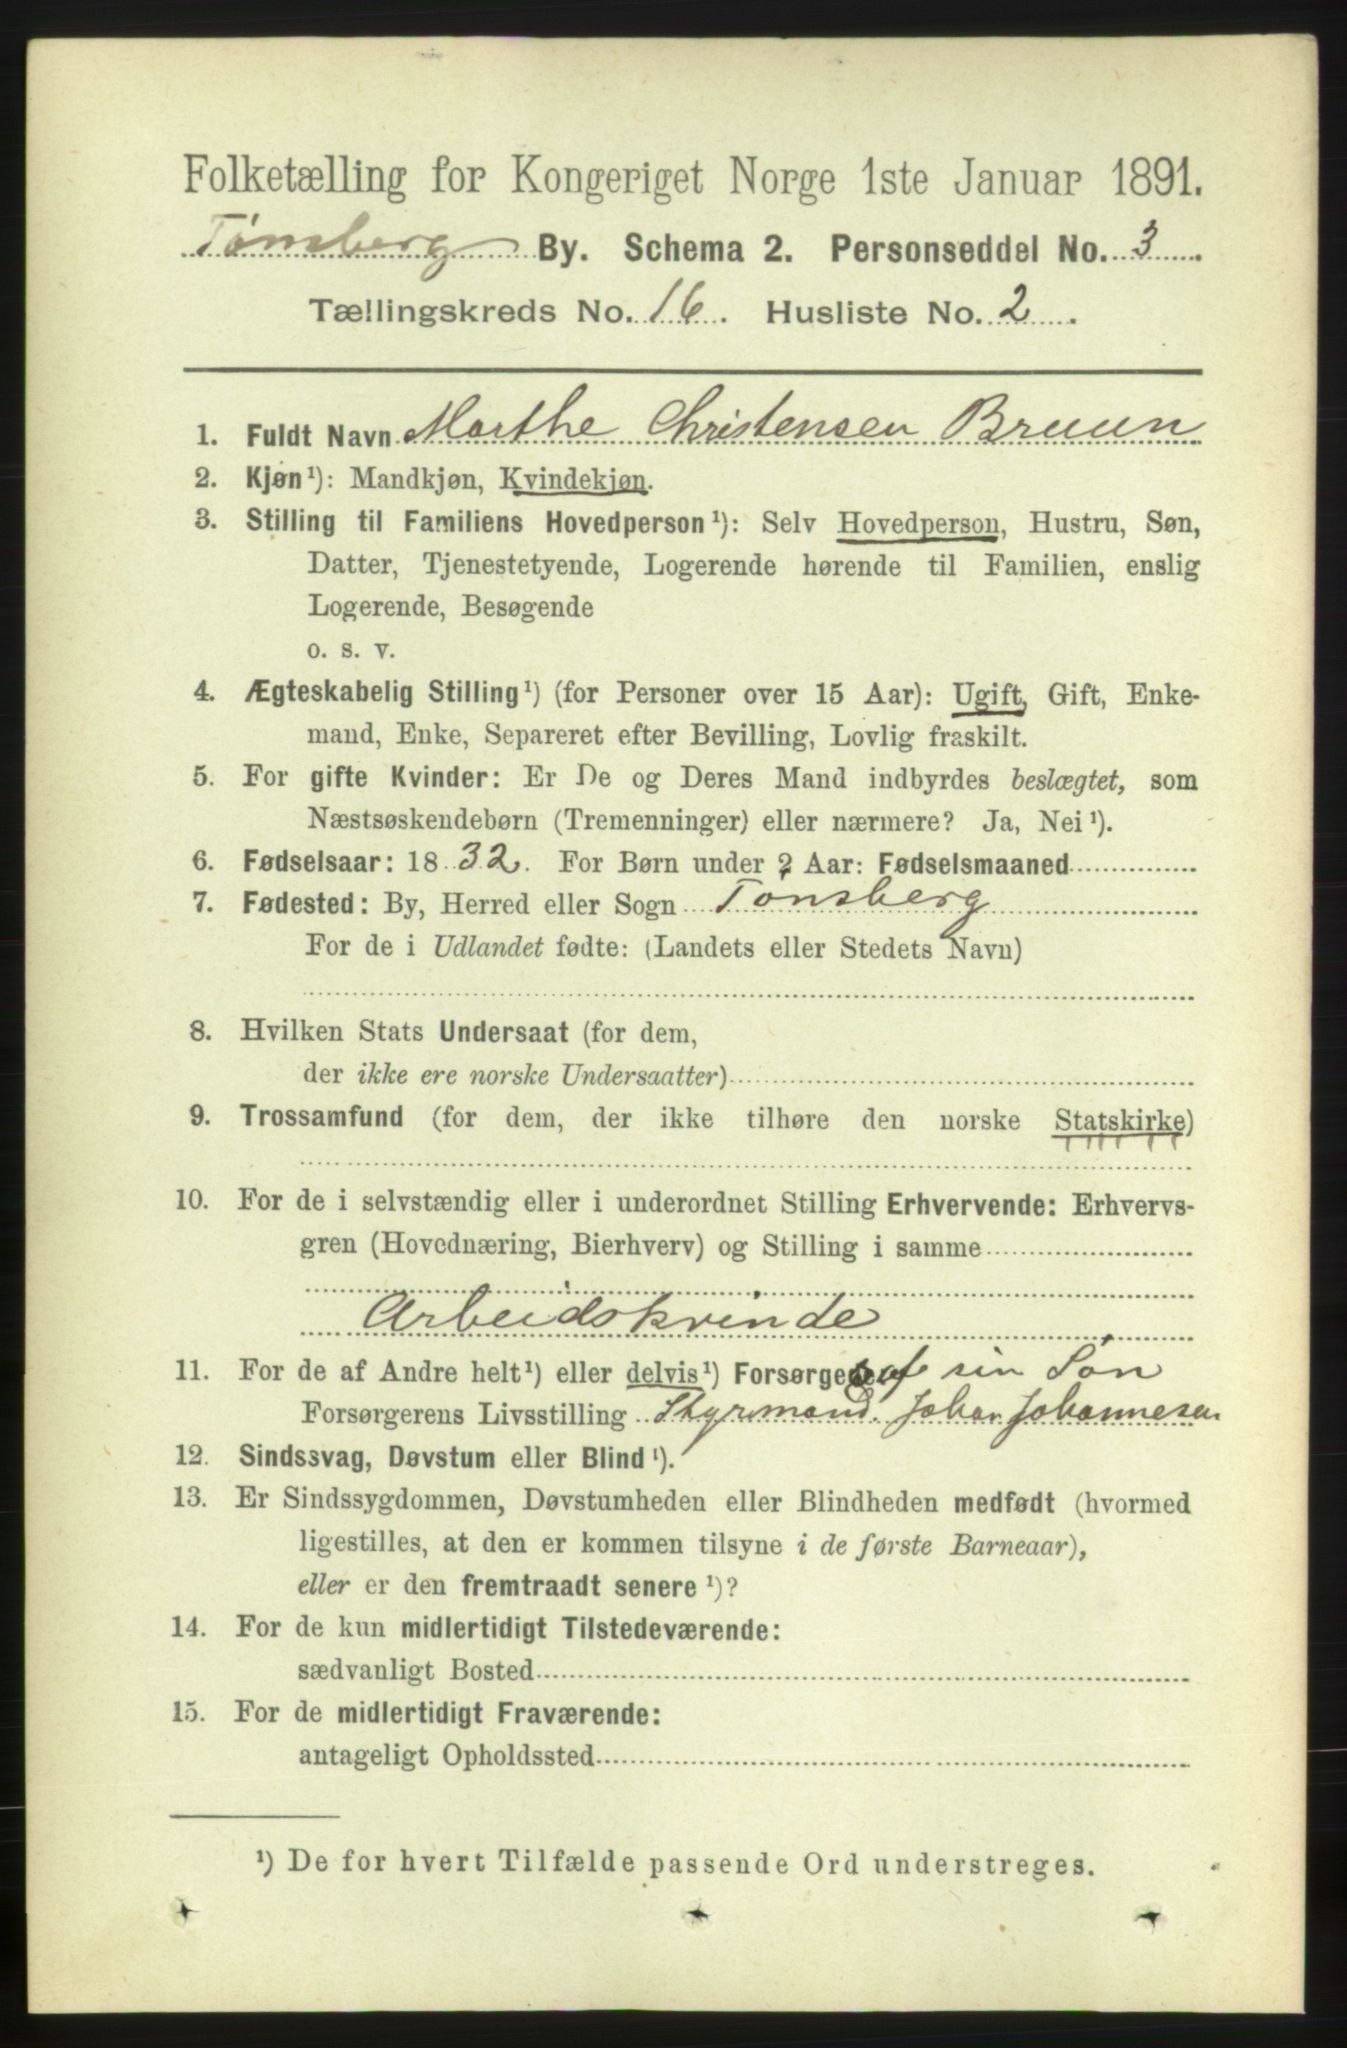 Folketælling for Kongeriget Norge 1ste Januar 1891.
Tønsberg By. Schema 2. Personseddel No. 3
Tællingskreds No. 16. Husliste No. 2.
1. Fuldt Navn Marthe Christensen Bruun
2. Kjøn¹): Mandkjøn, Kvindekjøn.
3. Stilling til Familiens Hovedperson¹): Selv Hovedperson, Hustru, Søn,
Datter, Tjenestetyende, Logerende hørende til Familien, enslig
Logerende, Besøgende
o. s. v.
4. Ægteskabelig Stilling¹) (for Personer over 15 Aar): Ugift, Gift, Enke-
mand, Enke, Separeret efter Bevilling, Lovlig fraskilt.
5. For gifte Kvinder: Er De og Deres Mand indbyrdes beslægtet, som
Næstsøskendebørn (Tremenninger) eller nærmere? Ja, Nei¹).
6. Fødselsaar: 1832. For Børn under 2 Aar: Fødselsmaaned
7. Fødested: By, Herred eller Sogn Tønsberg
For de i Udlandet fødte: (Landets eller Stedets Navn)
8. Hvilken Stats Undersaat (for dem,
der ikke ere norske Undersaatter)
9. Trossamfund (for dem, der ikke tilhøre den norske Statskirke)
10. For de i selvstændig eller i underordnet Stilling Erhvervende: Erhvervs-
gren (Hovednæring, Bierhverv) og Stilling i samme
Arbeidskvinde
11. For de af Andre helt¹) eller delvis¹) Forsørges af sin Søn
Forsørgerens Livsstilling Styrmand. Johan Johannesen
12. Sindssvag, Døvstum eller Blind¹).
13. Er Sindssygdommen, Døvstumheden eller Blindheden medfødt (hvormed
ligestilles, at den er kommen tilsyne i de første Barneaar),
eller er den fremtraadt senere¹)?
14. For de kun midlertidigt Tilstedeværende:
sædvanligt Bosted
15. For de midlertidigt Fraværende:
antageligt Opholdssted
¹) De for hvert Tilfælde passende Ord understreges.